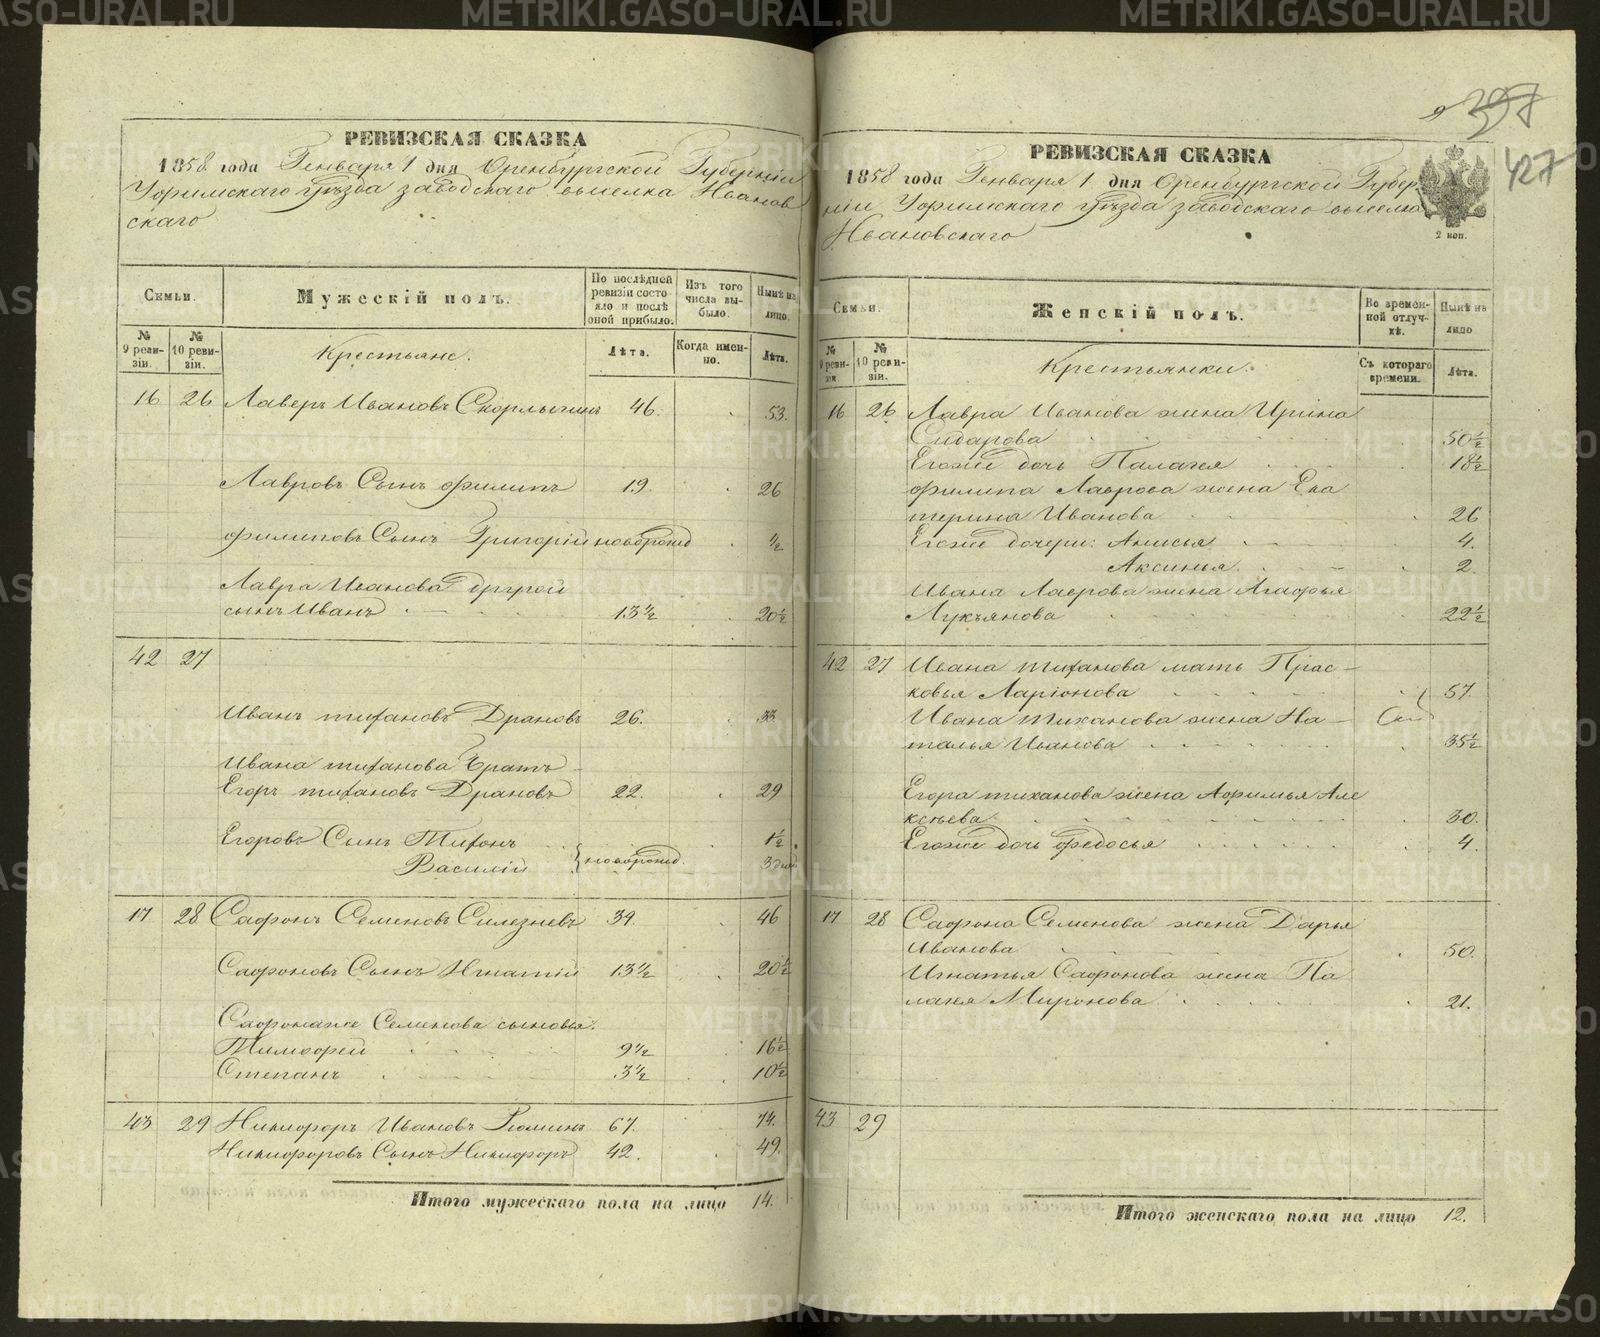 РЕВИЗСКАЯ СКАЗКА
1858 года Генваря 1 дня Оренбургской Губерніи
Уфимскаго уѣзда заводскаго выселка Иванов
скаго
Семьи.
Мужескій полъ.
По послѣдней ревизіи состояло и послѣ оной прибыло.
Изъ того числа выбыло.
Нынѣ на лицо.
№ 9 ревизіи.
№ 10 ревизіи.
Крестьяне.
Лѣта.
Когда именно.
Лѣта.
16 26 Лаверъ Ивановъ Скорлыгинъ 46. 53.
Лавровъ Сынъ Филипъ 19. 26
Филиповъ Сынъ Григорій новорожд ½
Лавра Иванова другой
сынъ Иванъ 13½ 20½
42 27
Иванъ Тихановъ Драновъ 26. 33
Ивана Тиханова братъ
Егоръ Тихановъ Драновъ 22. 29
Егоровъ Сынъ Тихонъ 1½
Василій } новорожд. 3 дней
17 28 Сафонъ Семеновъ Силезневъ 39. 46
Сафоновъ Сынъ Игнатій 13½ 20½
Сафонаже Семенова сыновья:
Тимофей 9½ 16½
Степанъ 3½ 10½
43 29 Никифоръ Ивановъ Рюминъ 67. 74.
Никифоровъ Сынъ Никифоръ 42. 49.
Итого мужескаго пола на лицо 14.
397
427
РЕВИЗСКАЯ СКАЗКА
1858 года Генваря 1 дня Оренбургской Губер
ніи Уфимскаго уѣзда заводскаго выселка
Ивановскаго
2 коп.
Семьи.
Женскій полъ.
Во временной отлучкѣ.
Нынѣ на лицо
№ 9 ревизіи.
№ 10 ревизіи.
Крестьянки.
Съ котораго времени.
Лѣта.
16 26 Лавра Иванова жена Ирина
Сидарова 50½
Егоже дочь Палагея 18½
Филипа Лаврова жена Ека
терина Иванова 26
Егоже дочери: Анисья 4.
Аксинья 2.
Ивана Лаврова жена Агафья
Лукьянова 22½
42 27 Ивана Тиханова мать Прас-
ковья Ларіонова 57.
Ивана Тиханова жена На-
талья Иванова 35½
Егора Тиханова жена Афимья Але
ксѣева 30.
Егоже дочь Федосья 4.
17 28 Сафона Семенова жена Дарья
Иванова 50.
Игнатья Сафонова жена Па
лагея Миронова 21.
43 29
Итого женскаго пола на лицо 12.
METRIKI.GASO-URAL.RU